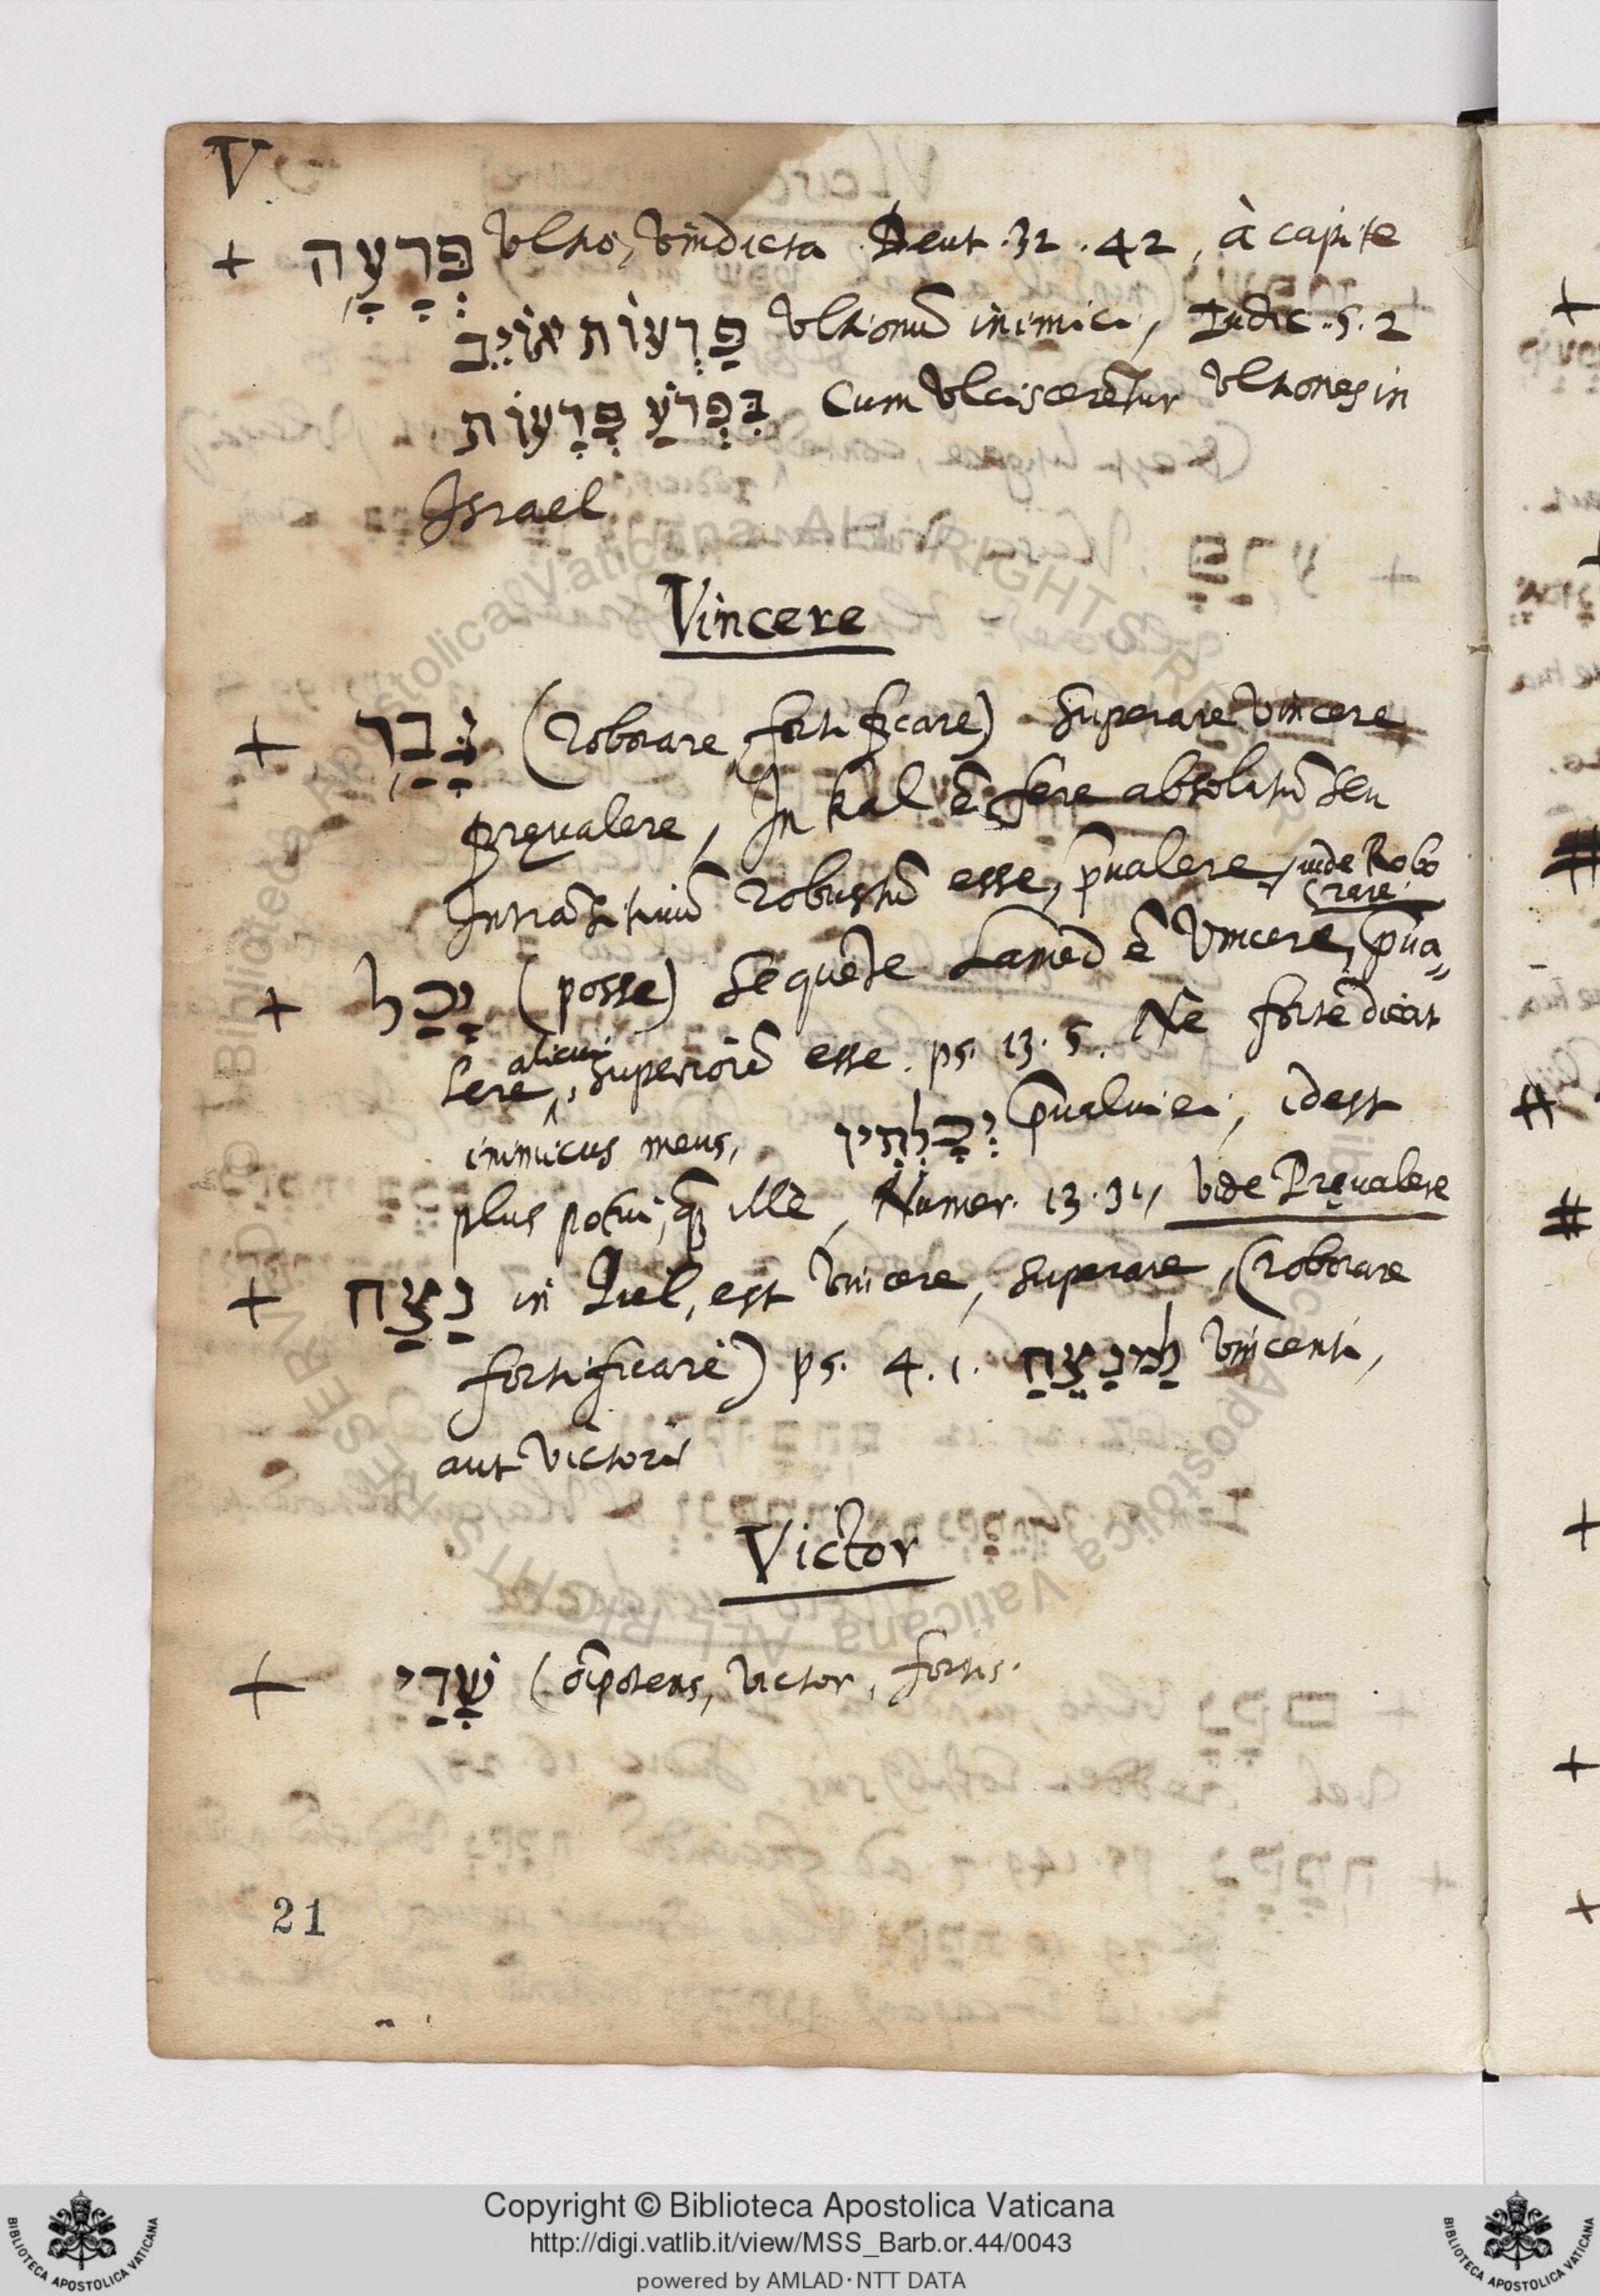 V
+ פְּרָעָה Ultio, Vindicta Deut. 32. 42, à capite
פַּרְעוֹת אוֹיֵב Ultionũ inimici, Iudic. 5. 2
בִּפְרֹעַ פְּרָעוֹת Cum Ulciscerẽtur Ultiones in
Israel
Vincere
+ גָּבַר (roborare, fortificare) Superare Vincere
pręualere, In Kal ẽ fere absolutũ seu
Intrãsitiuũ robustũ esse, p̃ualere, uide Robo
rare
+ יָכַל (posse) sequẽte Lamed ẽ Vincere, p̃ua„
lere, alicui superiorẽ esse. ps. 13. 5. Ne forte dicat
inimicus meus, יְכָלְתִּיו p̃ualui ei, idest
plus potui, quã ille, Numer. 13. 31, Vide Pręualere
+ נַצַח in Piel, est Vincere, superare, (roborare
fortificare) ps. 4. 1. לַמְנַצֵּחַ Vincenti,
aut Victori
Victor
+ שַׁדַּי (õipotens, Victor, fortis.
21
Copyright © Biblioteca Apostolica Vaticana
http://digi.vatlib.it/view/MSS_Barb.or.44/0043
powered by AMLAD·NTT DATA
BIBLIOTECA APOSTOLICA VATICANA
BIBLIOTECA APOSTOLICA VATICANA